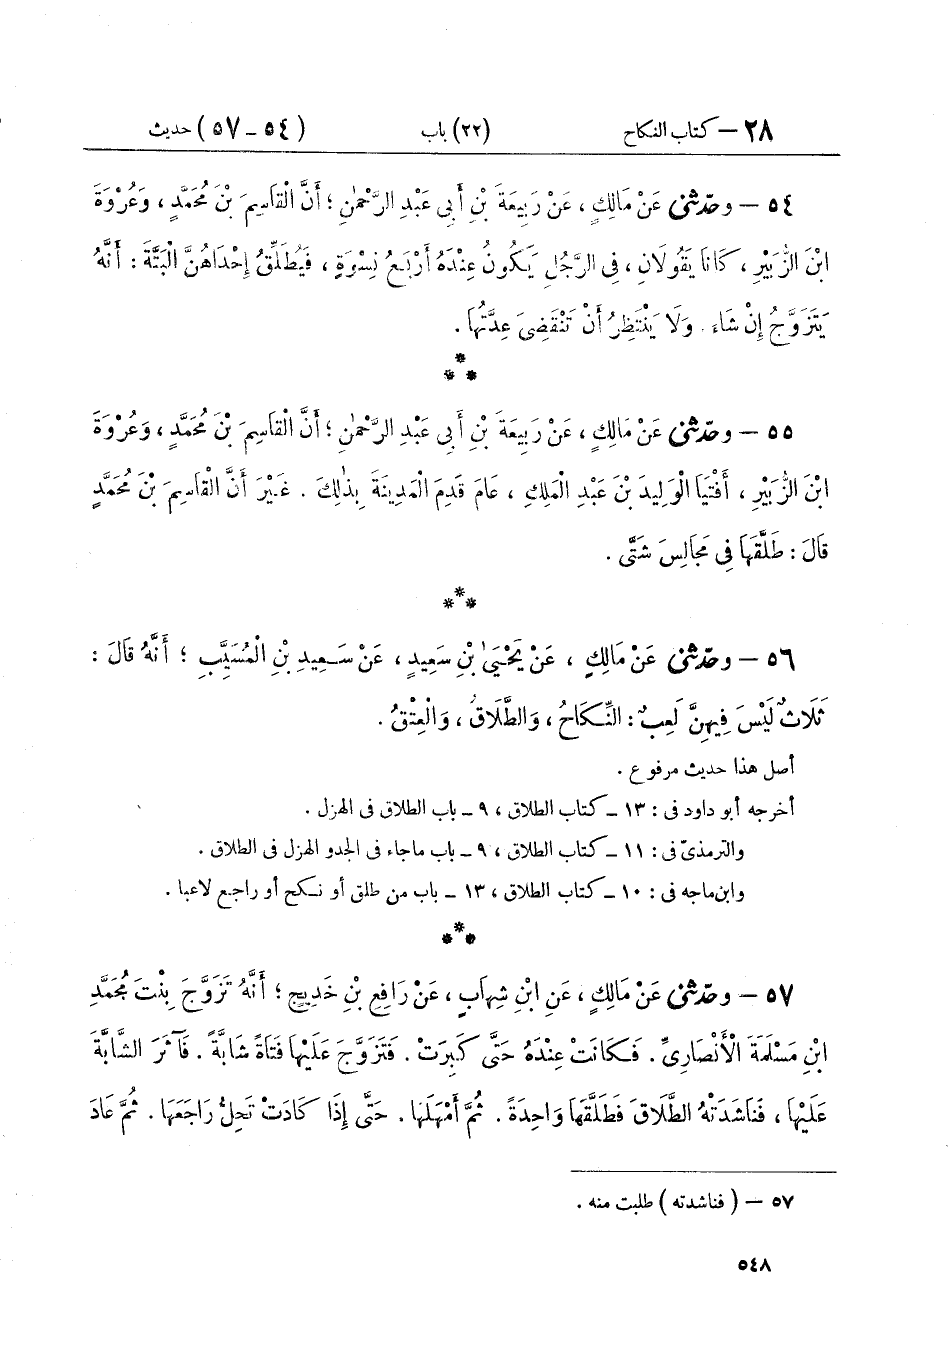 ٢٨ – كتاب النكاح (٢٢) باب (٥٤ – ٥٧) حديث
٥٤ – وحدّثنى عَنْ مَالِكٍ ، عَنْ رَبِيعَةَ بْنِ أَبِى عَبْدِ الرَّحْمٰنِ ؛ أَنَّ الْقَاسِمَ بْنَ مُحَمَّدٍ ، وَعُرْوَةَ
ابْنَ الزُّبَيْرِ ، كَانَا يَقُولَانِ ، فِى الرَّجُلِ يَكُونُ عِنْدَهُ أَرْبَعُ نِسْوَةٍ ، فَيُطَلِّقُ إِحْدَاهُنَّ الْبَتَّةَ : أَنَّهُ
يَتَزَوَّجُ إِنْ شَاءَ . وَلَا يَنْتَظِرُ أَنْ تَنْقَضِىَ عِدَّتُهَا .
***
٥٥ – وحدّثنى عَنْ مَالِكٍ ، عَنْ رَبِيعَةَ بْنِ أَبِى عَبْدِ الرَّحْمٰنِ ؛ أَنَّ الْقَاسِمَ بْنَ مُحَمَّدٍ ، وَعُرْوَةَ
ابْنَ الزُّبَيْرِ ، أَفْتَيَا الْوَلِيدَ بْنَ عَبْدِ الْمَلِكِ ، عَامَ قَدِمَ الْمَدِينَةَ بِذٰلِكَ . غَيْرَ أَنَّ الْقَاسِمَ بْنَ مُحَمَّدٍ
قَالَ : طَلَّقَهَا فِى مَجَالِسَ شَتَّى .
***
٥٦ – وحدّثنى عَنْ مَالِكٍ ، عَنْ يَحْيَىٰ بْنِ سَعِيدٍ ، عَنْ سَعِيدِ بْنِ الْمُسَيَّبِ ؛ أَنَّهُ قَالَ :
ثَلَاثٌ لَيْسَ فِيهِنَّ لَعِبٌ : النِّكَاحُ ، وَالطَّلَاقُ ، وَالْعِتْقُ .
أصل هذا حديث مرفوع .
أخرجه أبو داود فى : ١٣ – كتاب الطلاق ، ٩ – باب الطلاق فى الهزل .
والترمذىّ فى : ١١ – كتاب الطلاق ، ٩ – باب ماجاء فى الجدو الهزل فى الطلاق .
وابن ماجه فى : ١٠ – كتاب الطلاق ، ١٣ – باب من طلق أو نكح أو راجع لاعبا .
***
٥٧ – وحدّثنى عَنْ مَالِكٍ ، عَنِ ابْنِ شِهَابٍ ، عَنْ رَافِعِ بْنِ خَدِيجٍ ؛ أَنَّهُ تَزَوَّجَ بِنْتَ مُحَمَّدِ
ابْنِ مَسْلَمَةَ الْأَنْصَارِىِّ . فَكَانَتْ عِنْدَهُ حَتَّى كَبِرَتْ . فَتَزَوَّجَ عَلَيْهَا فَتَاةً شَابَّةً . فَآثَرَ الشَّابَّةَ
عَلَيْهَا ، فَنَاشَدَتْهُ الطَّلَاقَ فَطَلَّقَهَا وَاحِدَةً . ثُمَّ أَمْهَلَهَا . حَتَّى إِذَا كَادَتْ تَحِلُّ رَاجَعَهَا . ثُمَّ عَادَ
٥٧ – ( فناشدته ) طلبت منه .
٥٤٨